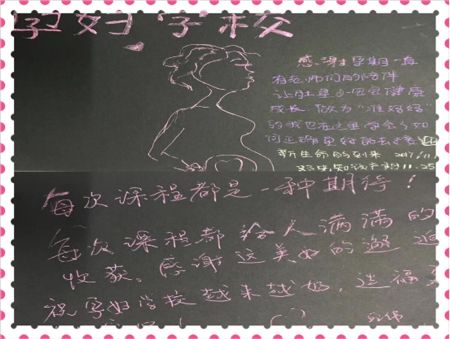 孕妇学校
感谢孕期一直
有老师们的陪伴
让肚里的宝宝健康
成长 做为“准妈妈”
的我也在这里学会了如
何正确更好的去迎
新生命的到来 2017.11
11.25
每次课程都是一种期待！
每次课程都给人满满的
收获。感谢这美好的邂逅
祝孕妇学校越来越好，造福